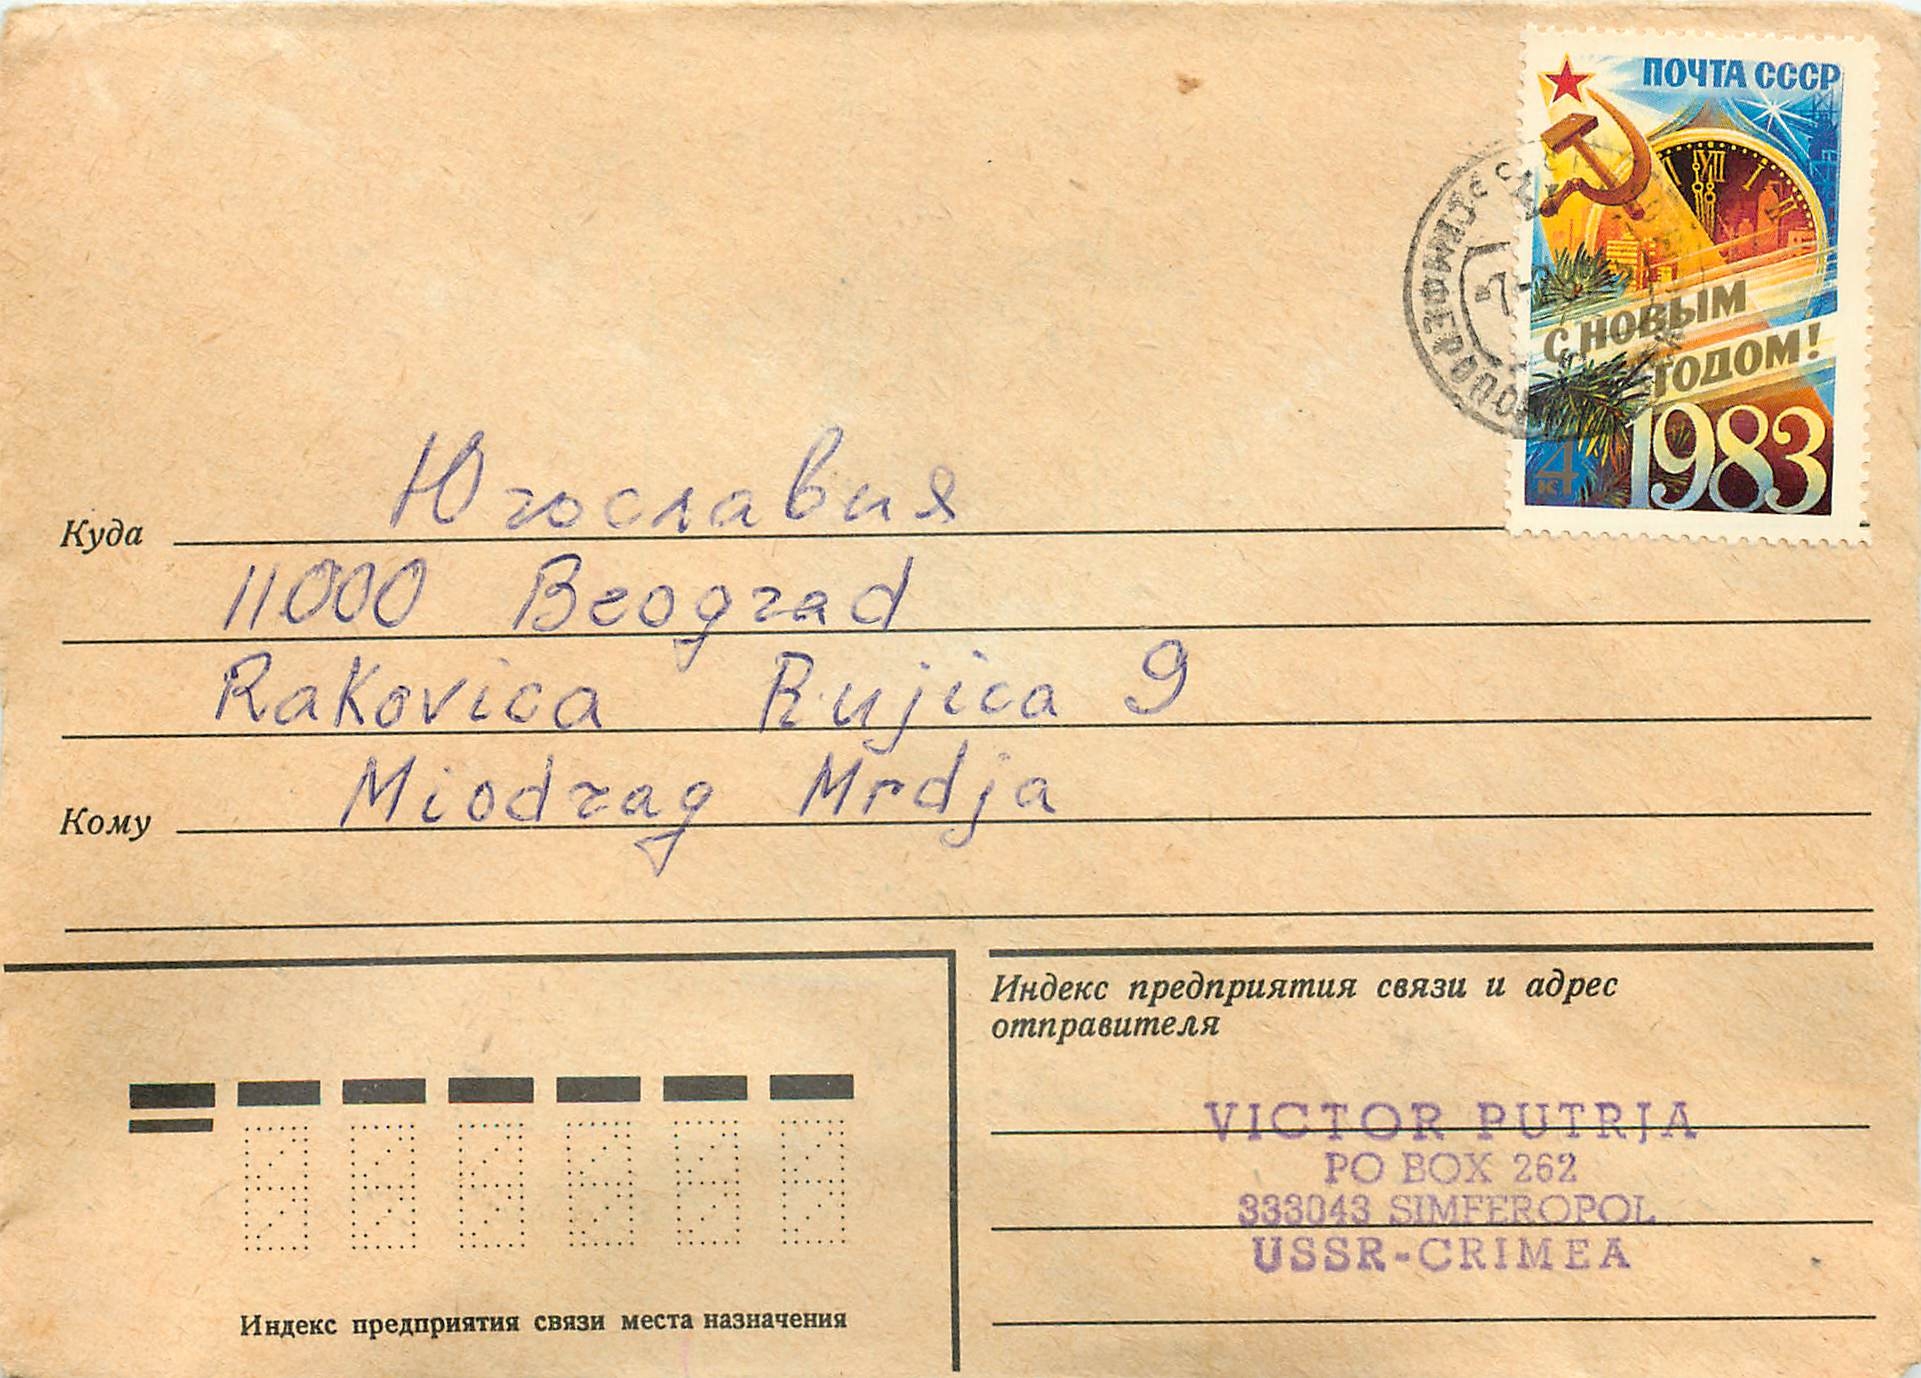 ПОЧТА СССР
С НОВЫМ
ГОДОМ!
1983
4
к
СИМФЕРОПОЛЬ
Куда Югославия
11000 Beograd
Rakovica Rujica 9
Кому Miodrag Mrdja
Индекс предприятия связи и адрес
отправителя
VICTOR PUTRJA
PO BOX 262
333043 SIMFEROPOL
USSR-CRIMEA
Индекс предприятия связи места назначения